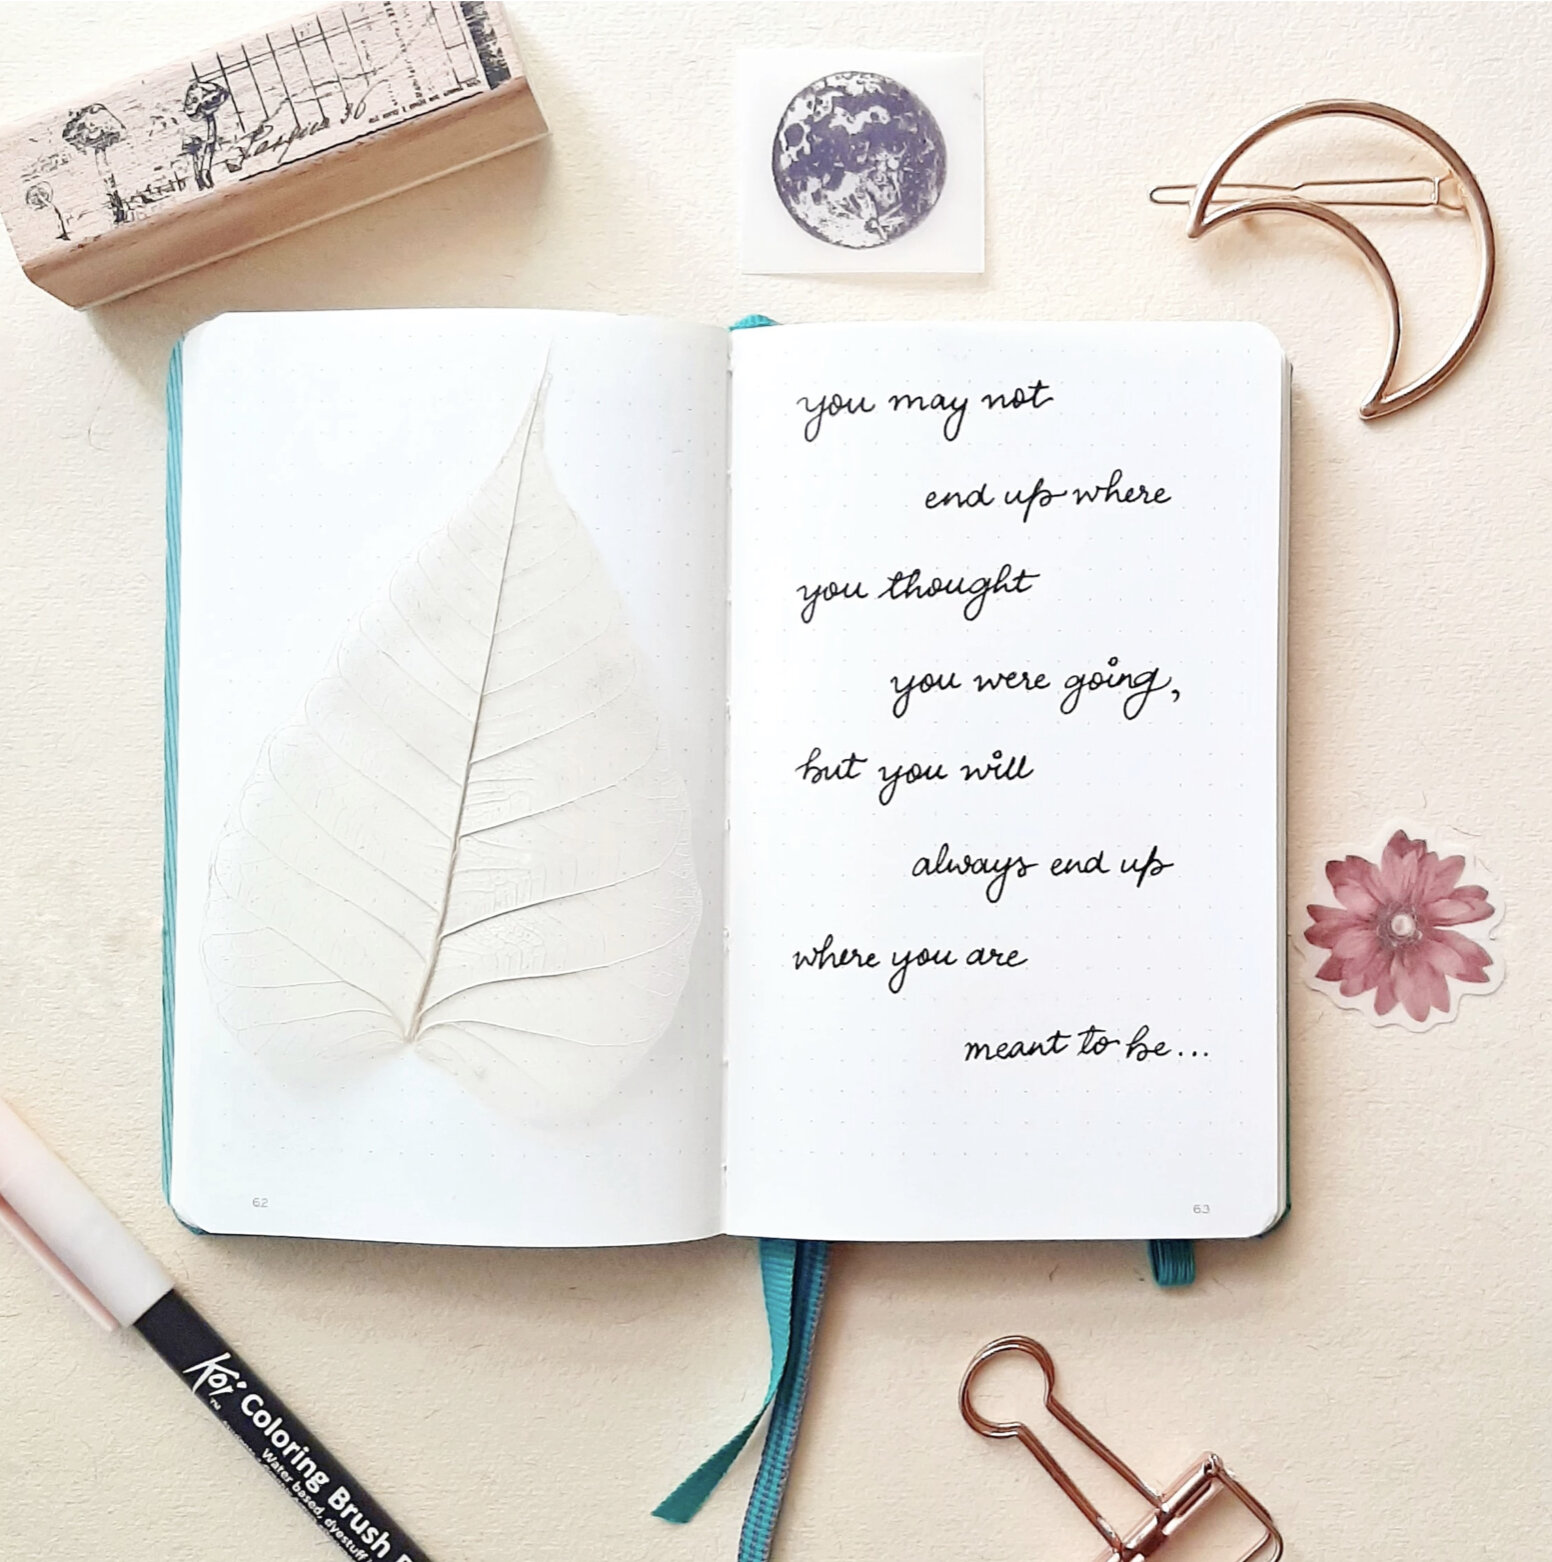 you may not
end up where
you thought
you were going,
but you will
always end up
where you are
meant to be...
62
63
Koi™
Coloring Brush
Water based, dyestuff